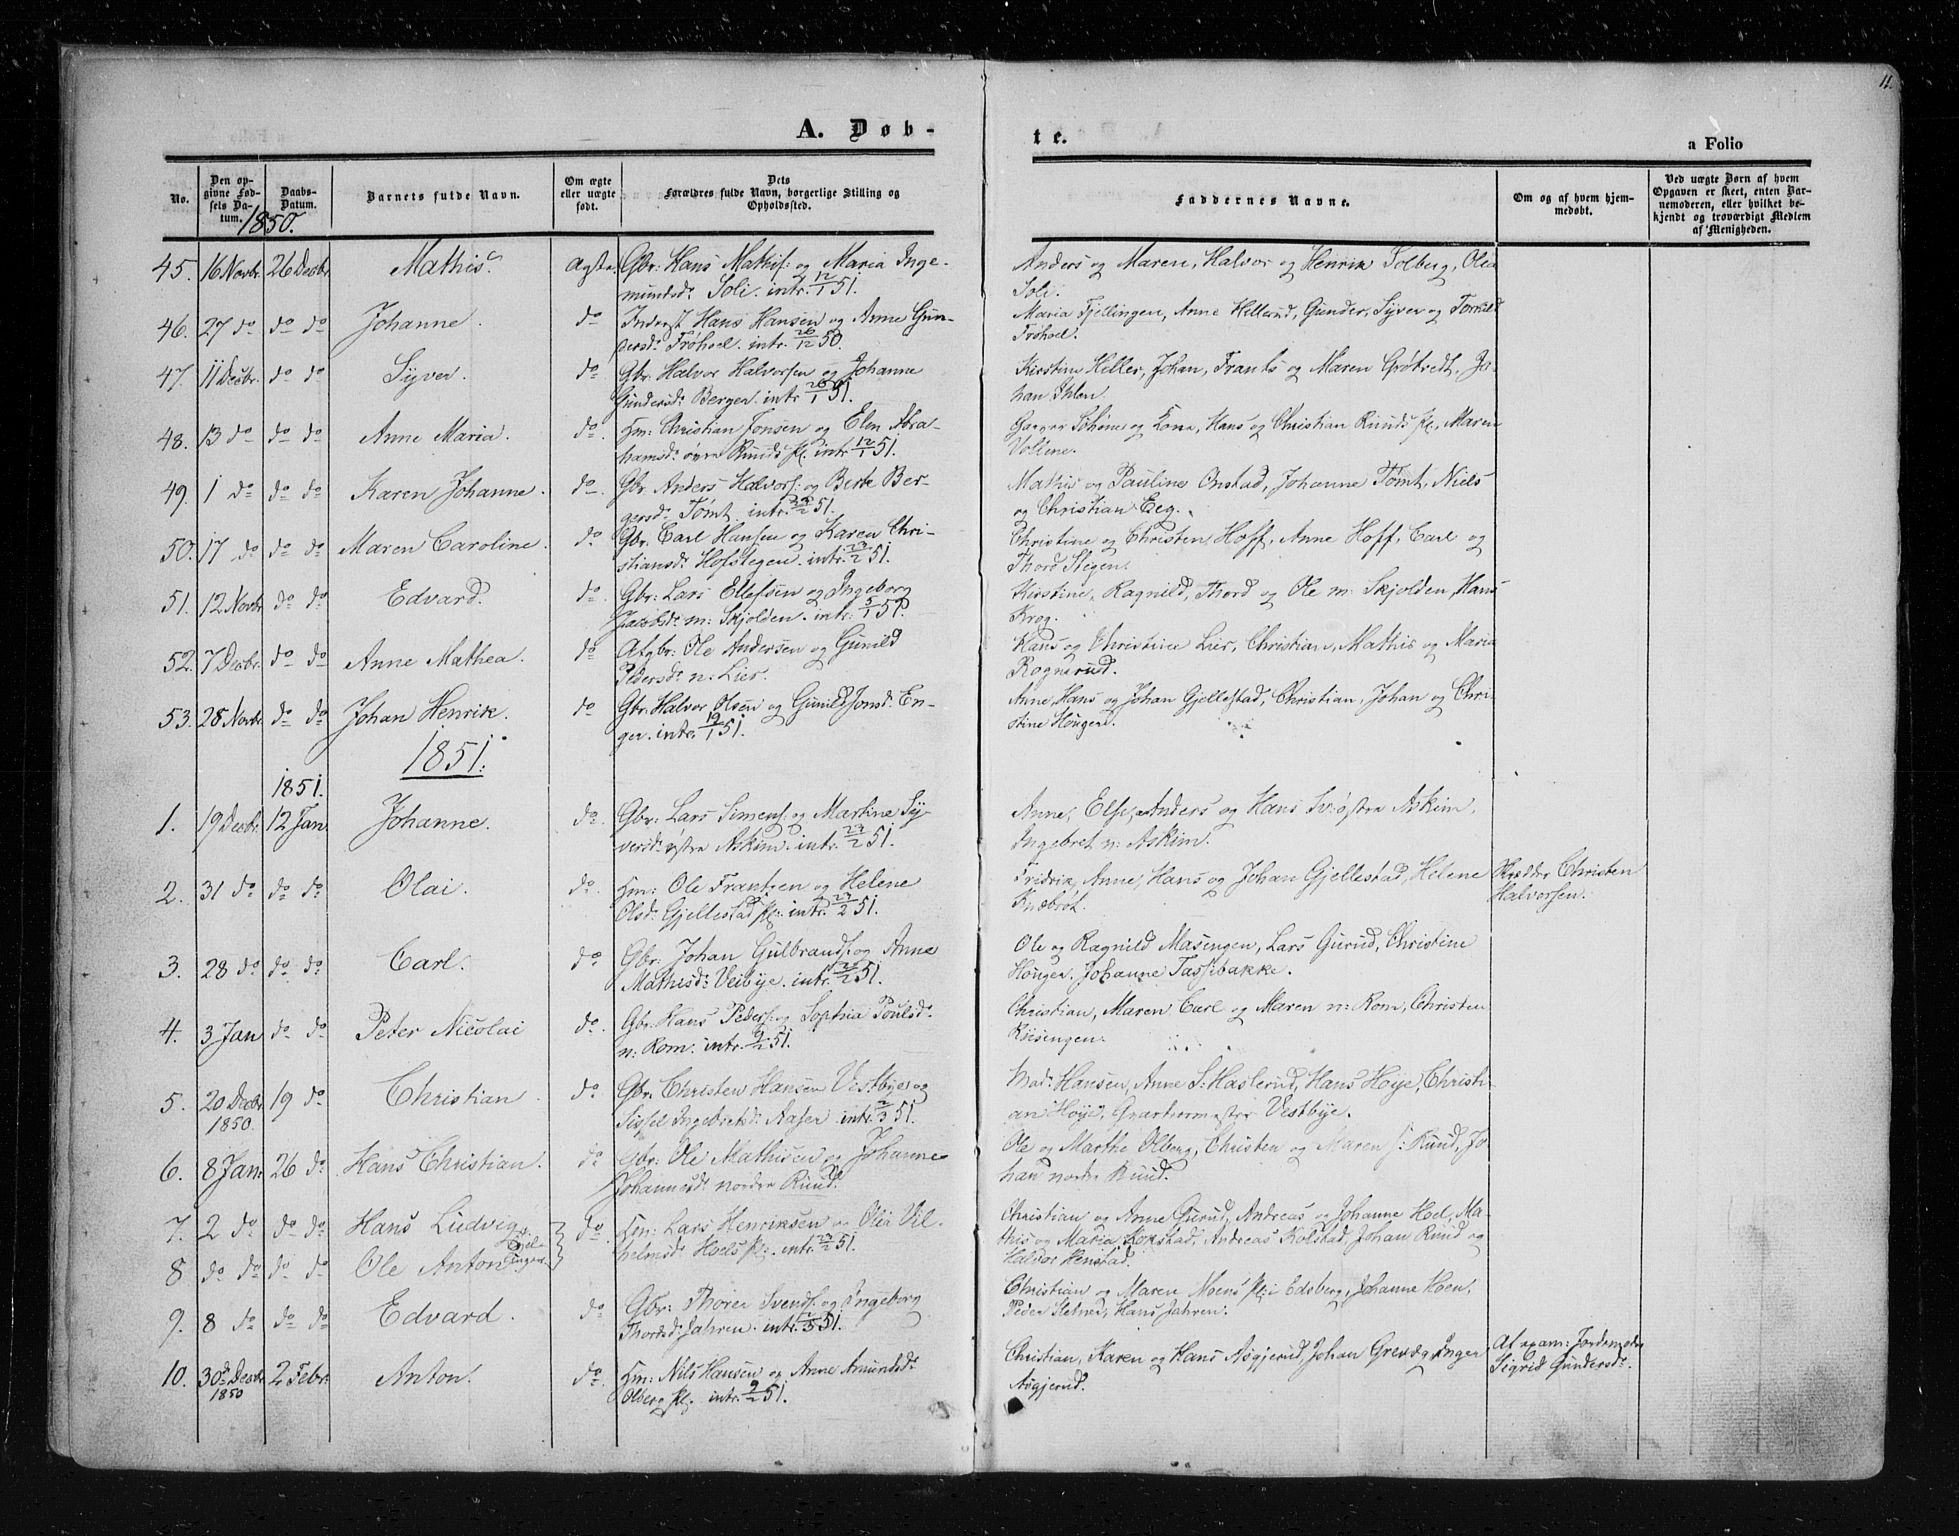 11.
A. Døb-
te.
a Folio
No.
Den op-
givne Fød-
sels Da-
tum.
Daabs-
Datum.
1850.
Barnets fulde Navn.
Om ægte
eller uægte
født.
Dets
Forældres fulde Navn, borgerlige Stilling og
Opholdssted.
Faddernes Navne.
Om og af hvem hjem-
medøbt.
Ved uægte Børn af hvem
Opgaven er skeet, enten Bar-
nemoderen, eller hvilket be-
kjendt og troværdigt Medlem
af Menigheden.
45. 16 Novbr. 26 Decbr. Mathis. ægte Gbr: Hans Mathis: og Maria Inge-
mundsd: Soli. intr. 12/1 51.
Anders og Maren, Halvor og Henrik Solberg, Olea
Soli.
46. 27 do do do Johanne. do Inderst Hans Hansen og Anne Gun-
dersd: Frøhoel. intr. 26/12 50.
Maria Fjellingen, Anne Hillerud, Gunder, Syver og Torkild
Frøhoel.
47. 11 Decbr. do do Syver. do Gbr. Halvor Halvorsen og Johanne
Gundersd: Bergen. intr 26/1 51.
Kirstine Heller, Johan, Frants og Maren Grøtvedt, Jo-
han Ihlen.
48. 13 do do do Anne Maria. do. Hm: Christian Jonsen og Elen Abra-
hamsd: øvre Ruuds pl. intr 12/1 51.
og Lona, Hans og Christian Ruuds pl., Maren
Vollene.
49. 1 do do do Karen Johanne. do Gbr. Anders Halvors: og Berte Ber-
gersd: Tømt. intr. 23/2 51.
Mathis og Pauline Onstad, Johanne Tømt, Niels
og Christian Eeg.
50. 17 do do do Maren Caroline. do Gbr. Carl Hansen og Karen Chri-
stiansd: Hofstegen. intr. 23/2 51.
Christine og Christen Hoff, Anne Hoff, Carl og
Thord Stegen.
51. 12 Novbr do do Edvard. do. Gbr: Lars Ellefsen og Ingeborg
Jacobsd: m: Skjolden. intr: 5/1 51.
Kirstine, Ragnild, Thord og Ole m: Skjolden, Hans
Krog.
52. 7 Decbr. do do Anne Mathea. do Afgbr: Ole Andersen og Gunild
Pedersd: n: Lier.
Hans og Christine Lier, Christian, Mathis og Maria
Rognerud.
53. 28 Novbr. do do Johan Henrik. do Gbr. Halvor Olsen og Gunild Jonsd: En-
ger. intr. 19/1 51.
Anne, Hans og Johan Gjellestad, Christian, Johan og Chri-
stine Houger.
1851.
1851.
1. 19 Decbr. 12 Jan Johanne. do. Gbr: Lars Simens: og Martine Sy-
versd: østre Askim. intr. 23/2 51.
Anne, Else, Anders og Hans Sv: østre Askim,
Ingebret n: Askim.
2. 31 do do do Olai. do. Hm: Ole Frantzen og Helene
Olsd: Gjellestad pl: intr. 23/2 51.
Fridrik, Anne, Hans og Johan Gjellestad, Helene
Knæbrøt.
Skrædder Christen
Halvorsen.
3. 28 do do. do. Carl. do. Gbr: Johan Gulbrands: og Anne
Mathisd: Veibye. intr. 23/2 51.
Ole og Ragnild Masengen, Lars Gurud, Christine
Houger, Johanne Tassebakke.
4. 3 Jan do. do Peter Nicolai do. Gbr: Hans Peders: og Sophia Poulsd:
n: Rom. intr. 9/2 51.
Christian, Maren Carl og Maren n: Rom, Christen
Kisingen.
5. 20 Decbr.
1850.
19 do Christian. do Gbr: Christen Hansen Vestbye og
Sissel Ingebretsd: Aaser intr. 2/3 51.
Mad. Hansen, Anne S: Haslerud, Hans Høye, Christi-
an Høye, Qvarteermester Vestbye.
6. 8 Jan. 26 do Hans Christian. do Gbr: Ole Mathisen og Johanne
Johannesd: nordre Ruud.
Ole og Marthe Olberg, Christen og Maren s: Ruud, Jo-
han nordre Ruud.
7. 2 do do do Hans Ludvig
8 do do do do Ole Anton
Tvil-
linger.
do. Hm: Lars Henriksen og Olea Vil-
helmsd: Hoels pl: intr. 23/2 51.
Christian og Anne Gurud, Andreas og Johanne Hoel, Ma-
this og Maria Kokstad, Andreas Kolstad, Johan Ruud og
Halvor Henstad.
9. 8 do do do Edvard. do Gbr: Thorer Svends: og Ingeborg
Thordsd: Jahren. intr. 51.
Christian og Maren Moens pl: i Edsberg, Johanne Hoen,
Peder, Hans Jahren.
10. 30 Decbr
1850
2 Febr. Anton. do. Hm: Nils Hansen og Anne Amundsd:
Olberg pl: intr. 9/2 51.
Christian, Karen og Hans Asgjerud, Johan Grevæg, Inger
Asgjerud.
Af exam: Jordemoder
Sigrid Gundersd: